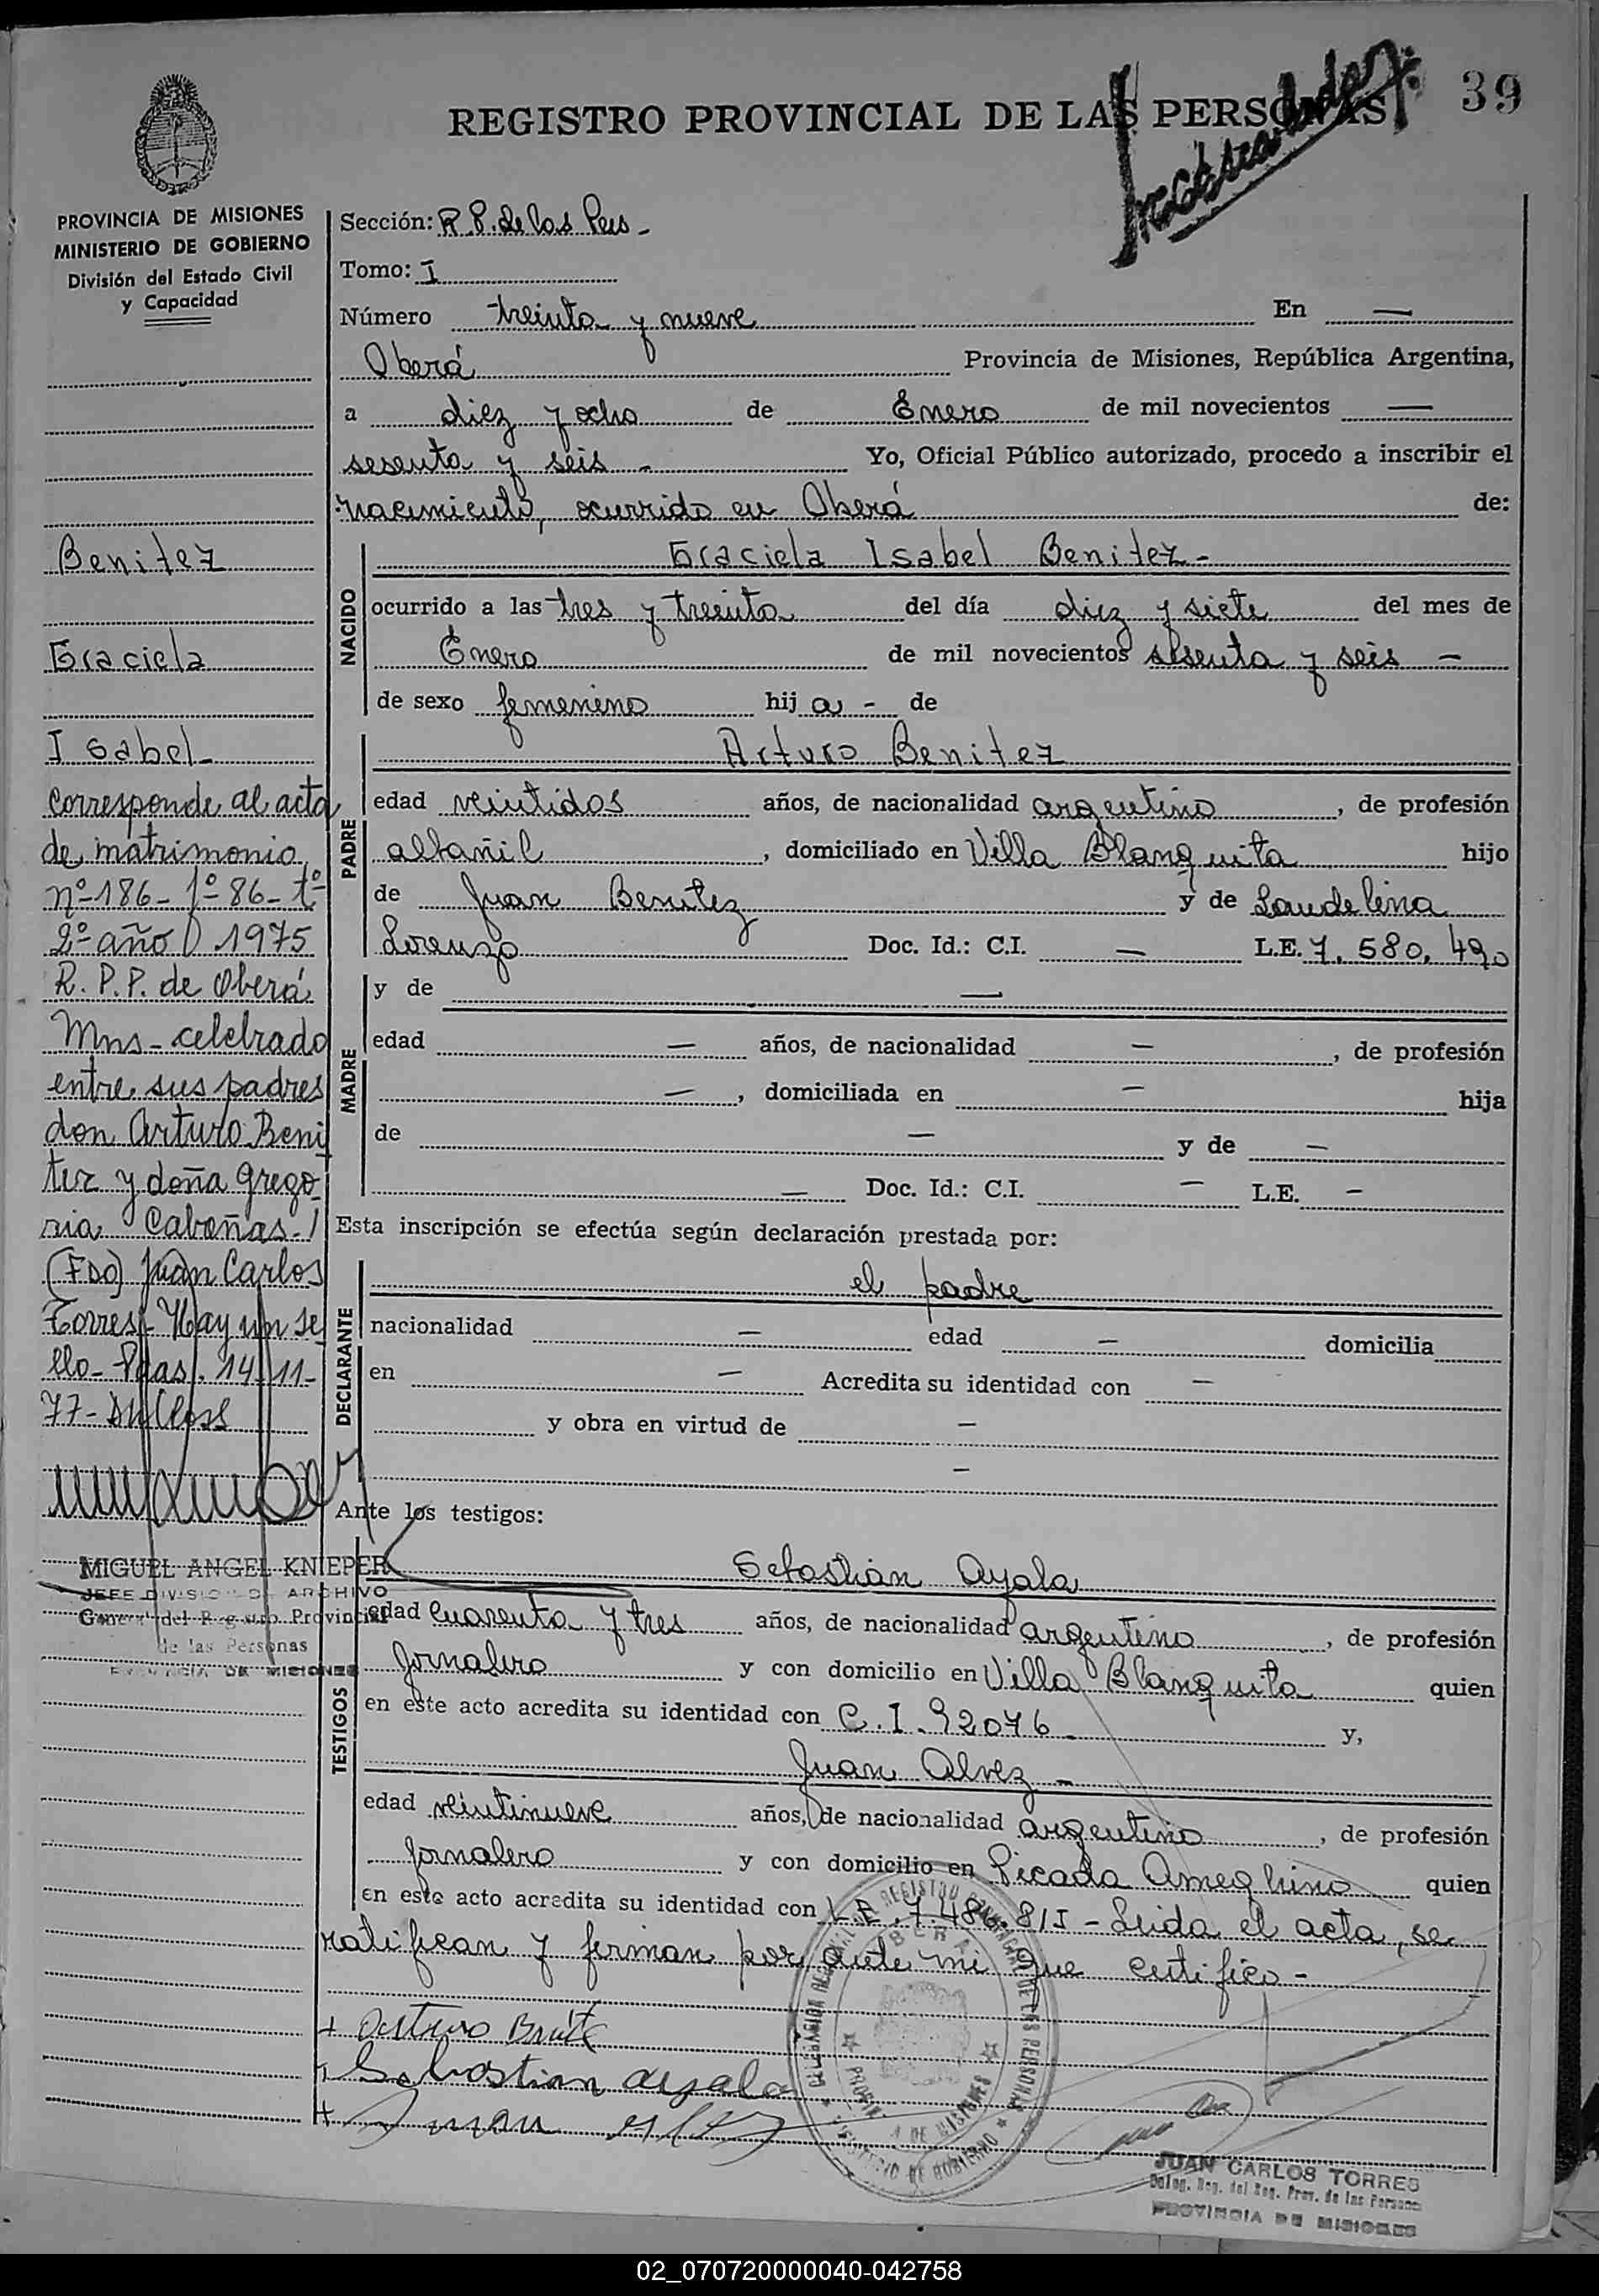 39
REGISTRO PROVINCIAL DE LAS PERSONAS
PROVINCIA DE MISIONES
MINISTERIO DE GOBIERNO
División del Estado Civil
y Capacidad
Benitez
Graciela
Isabel-
corresponde al acta
de matrimonio
nº-186- fº-86- tº-
2º- año 1975
R. P. P. de Oberá
Mns- celebrado
entre sus padres
don Arturo Beni
tez y doña Grego
ria Cabañas-/
(FDO) Juan Carlos
Torres- Hay un se
llo- Pdas. 14-11-
77-
MIGUEL ANGEL KNIEPER
JEFE DIVISION DE ARCHIVO
General del Registro Provincial
de las Personas
PROVINCIA DE MISIONES
Sección: R.P. de las Pers -
Tomo: I
Número treinta y nueve En —
Oberá Provincia de Misiones, República Argentina,
a diez y ocho de Enero de mil novecientos —
sesenta y seis - Yo, Oficial Público autorizado, procedo a inscribir el
nacimiento, ocurrido en Oberá de:
NACIDO
Graciela Isabel Benitez-
ocurrido a las tres y treinta del día diez y siete del mes de
Enero de mil novecientos sesenta y seis —
de sexo femenino hij a - de
PADRE
Arturo Benitez
edad veintidos años, de nacionalidad argentino, de profesión
albañil, domiciliado en Villa Blanquita hijo
de Juan Benitez y de Laudelina
Lorenzo Doc. Id.: C.I. — L.E. 7.580.490
MADRE
y de —
edad — años, de nacionalidad —, de profesión
—, domiciliada en — hija
de — y de —
— Doc. Id.: C.I. — L.E. —
Esta inscripción se efectúa según declaración prestada por:
DECLARANTE
el padre
nacionalidad — edad — domicilia
en — Acredita su identidad con —
y obra en virtud de —
—
Ante los testigos:
TESTIGOS
Sebastian Ayala
edad cuarenta y tres años, de nacionalidad argentino, de profesión
Jornalero y con domicilio en Villa Blanquita quien
en este acto acredita su identidad con C.I. 92076 y,
Juan Alvez -
edad veintinueve años, de nacionalidad argentino, de profesión
Jornalero y con domicilio en Picada Ameghino quien
en este acto acredita su identidad con L.E. 7.486.811 - Leida el acta, se
ratifican y firman por ante mi que certifico -
+ Arturo Benitez
+ Sebastian ayala
+ Juan
OBERA
JUAN CARLOS TORRES
Deleg. Reg. del Reg. Prov. de las Personas
PROVINCIA DE MISIONES
02_070720000040-042758